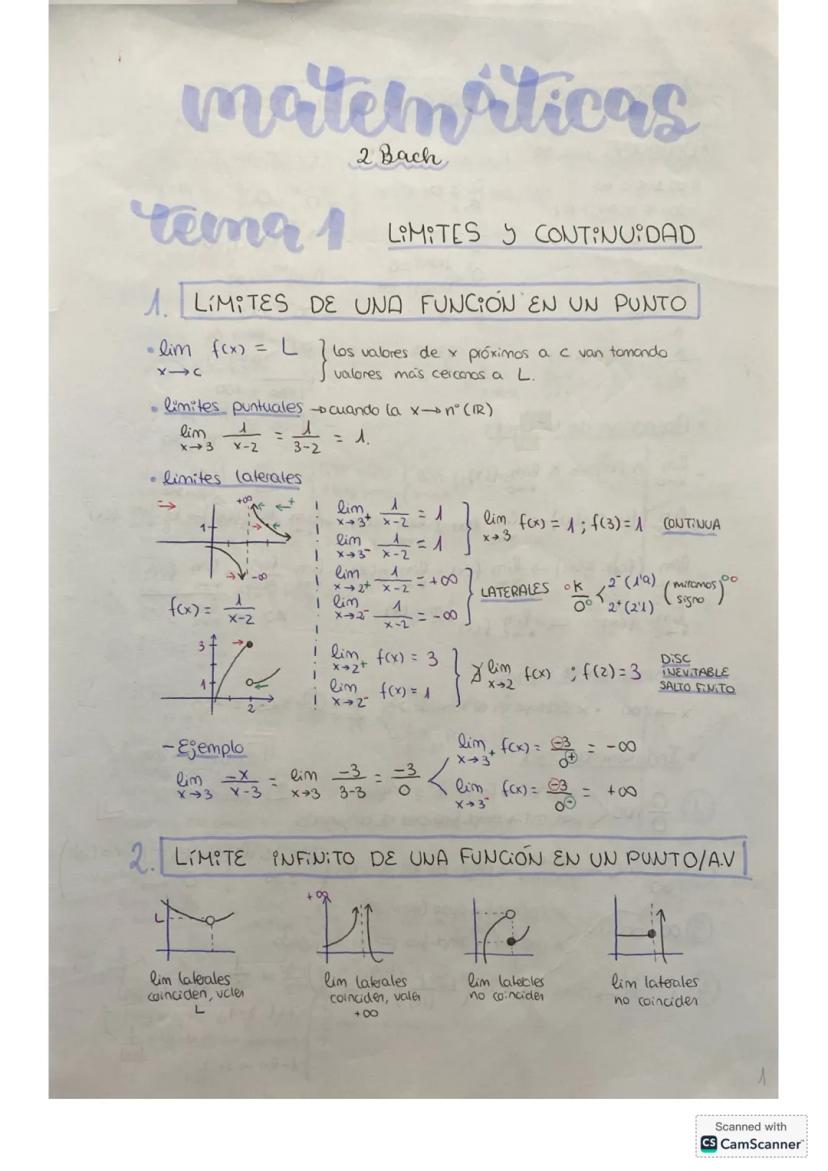 matemáticas
2 Bach
tema 1 LÍMITES Y CONTINUIDAD
1. LÍMITES DE UNA FUNCIÓN EN UN PUNTO
• lim f(x) = L } los valores de x próximos a c van tomando
x→c valores más cercanos a L.
• límites puntuales → cuando la x → nº (ℝ)
lim 1/(x-2) = 1/(3-2) = 1.
x→3
• límites laterales
+∞ ← +
1
-∞
f(x) = 1/(x-2)
lim x→3⁺ 1/(x-2) = 1
lim x→3⁻ 1/(x-2) = 1
lim x→3 f(x) = 1 ; f(3) = 1 CONTINUA
lim x→2⁺ 1/(x-2) = +∞
lim x→2⁻ 1/(x-2) = -∞
LATERALES K/0 < 2⁻(1'9) 2⁺(2'1) (miramos signo)
3
1
2
lim x→2⁺ f(x) = 3
lim x→2⁻ f(x) = 1
∄ lim x→2 f(x) ; f(2) = 3
DISC
INEVITABLE
SALTO FINITO
- Ejemplo
lim x→3 -x/(x-3) = lim x→3 -3/(3-3) = -3/0
lim x→3⁺ f(x) = -3/0⁺ = -∞
lim x→3⁻ f(x) = -3/0⁻ = +∞
2. LÍMITE INFINITO DE UNA FUNCIÓN EN UN PUNTO/A.V
L
+∞
lim laterales
coinciden, valen
L
lim laterales
coinciden, valen
+∞
lim laterales
no coinciden
lim laterales
no coinciden
1
Scanned with
CS CamScanner